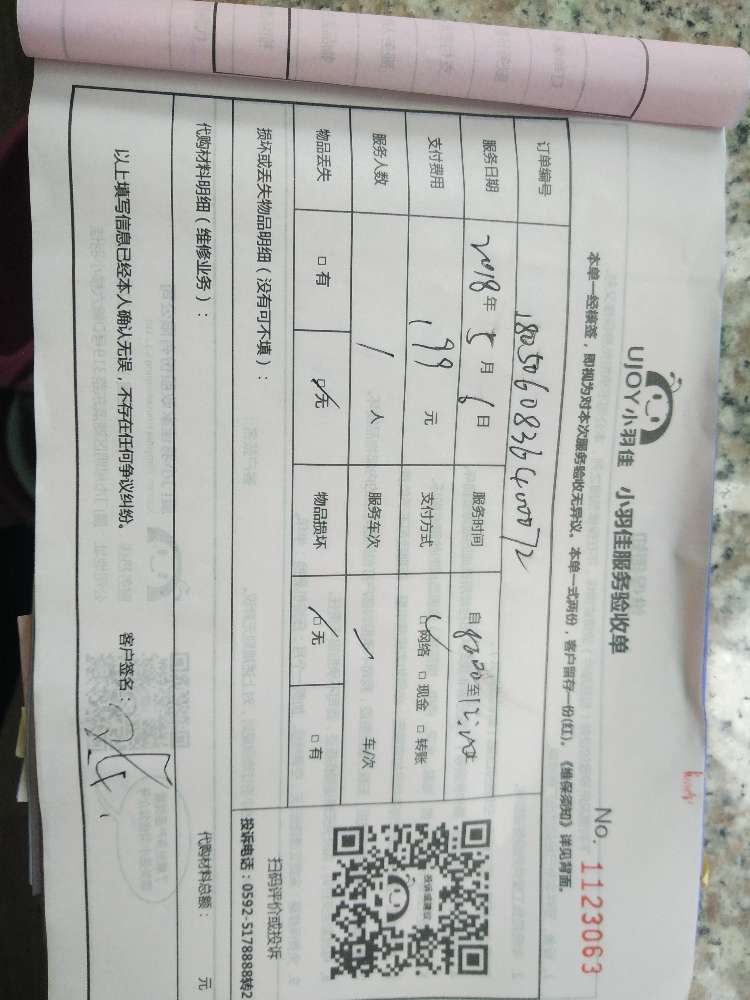 UJOY小羽佳 小羽佳服务验收单 No. 1123063
本单一经横签，即视为对本次服务验收无异议。本单一式两份，客户留存一份(红)。《维保须知》详见背面。
订单编号 1805060836400072
服务日期 2018年5月6日 服务时间 自8:00至12:00
支付费用 199元 支付方式 ☑网络 □现金 □转账
服务人数 1人 服务车次 1车/次
物品丢失 □有 ☑无 物品损坏 ☑无 □有
损坏或丢失物品明细（没有可不填）：
投诉或建议
扫码评价或投诉
投诉电话：0592-5178888转2
代购材料明细（维修业务）： 代购材料总额： 元
以上填写信息已经本人确认无误，不存在任何争议纠纷。 客户签名：